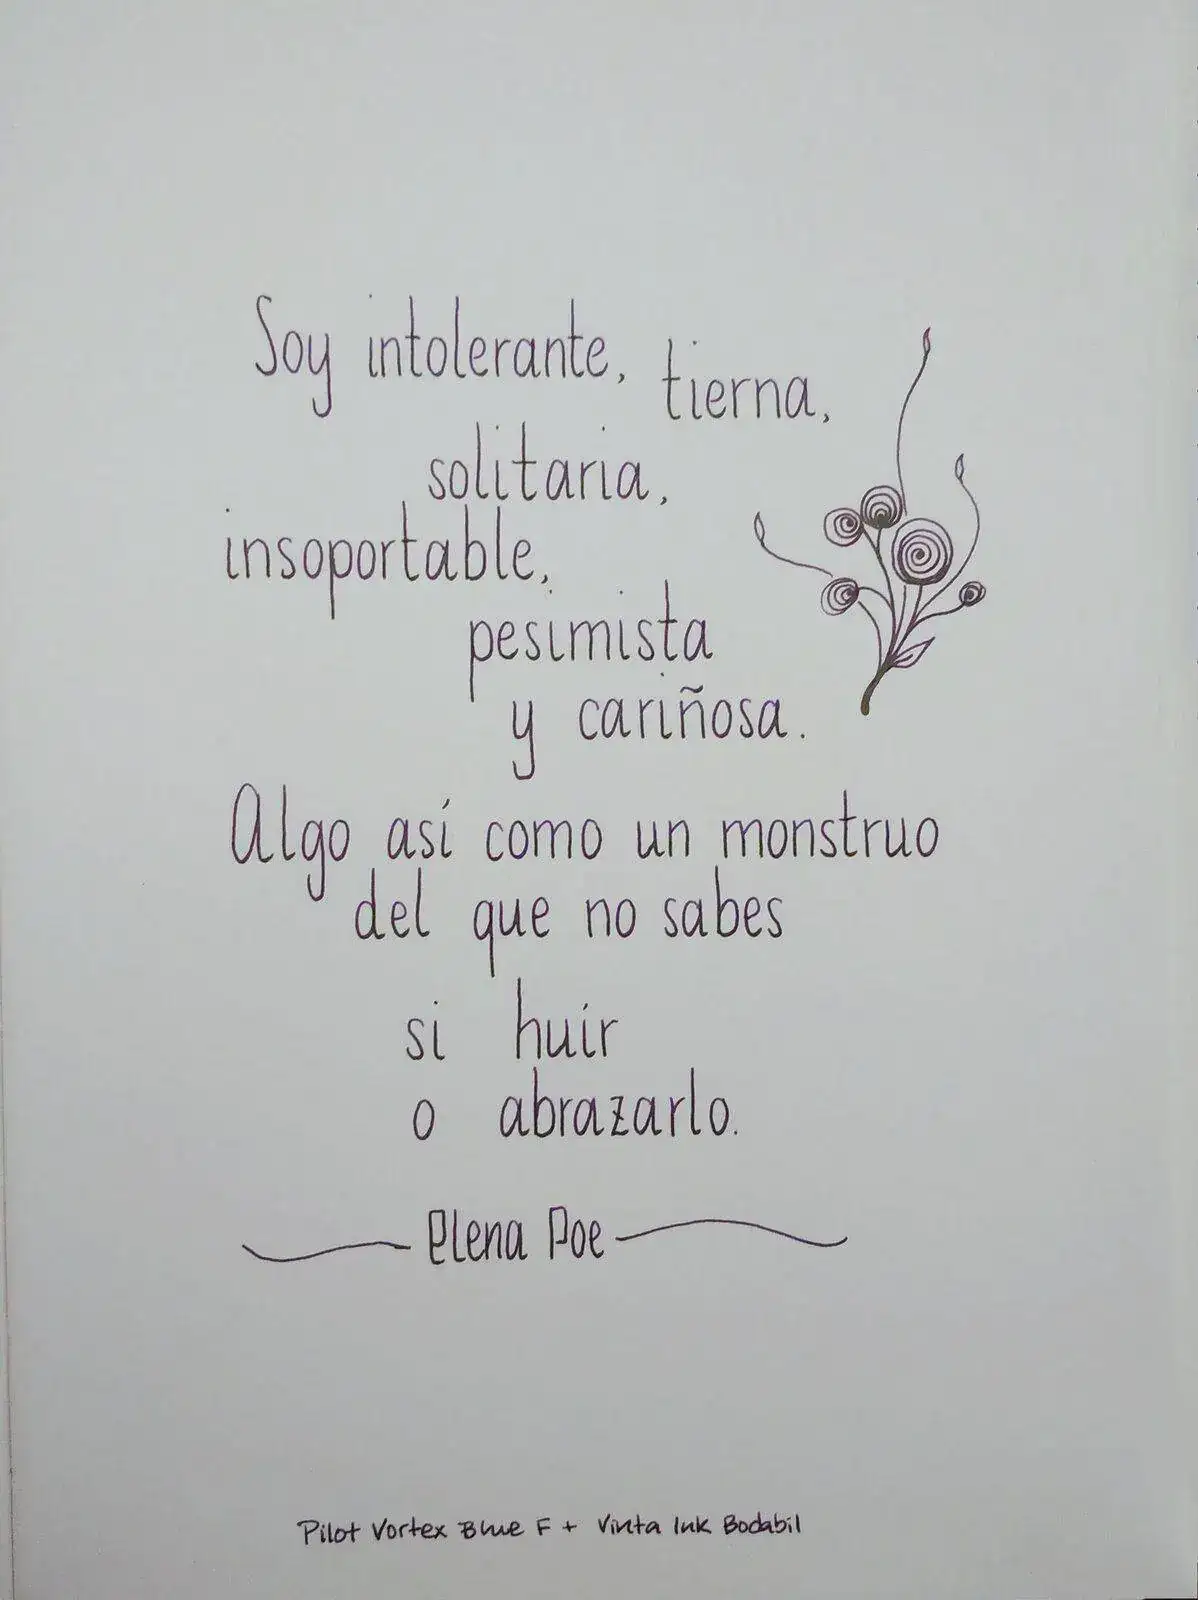 Soy intolerante, tierna,
solitaria,
insoportable,
pesimista
y cariñosa.
Algo así como un monstruo
del que no sabes
si huir
o abrazarlo.
Elena Poe
Pilot Vortex Blue F + Vinta Ink Bodabil